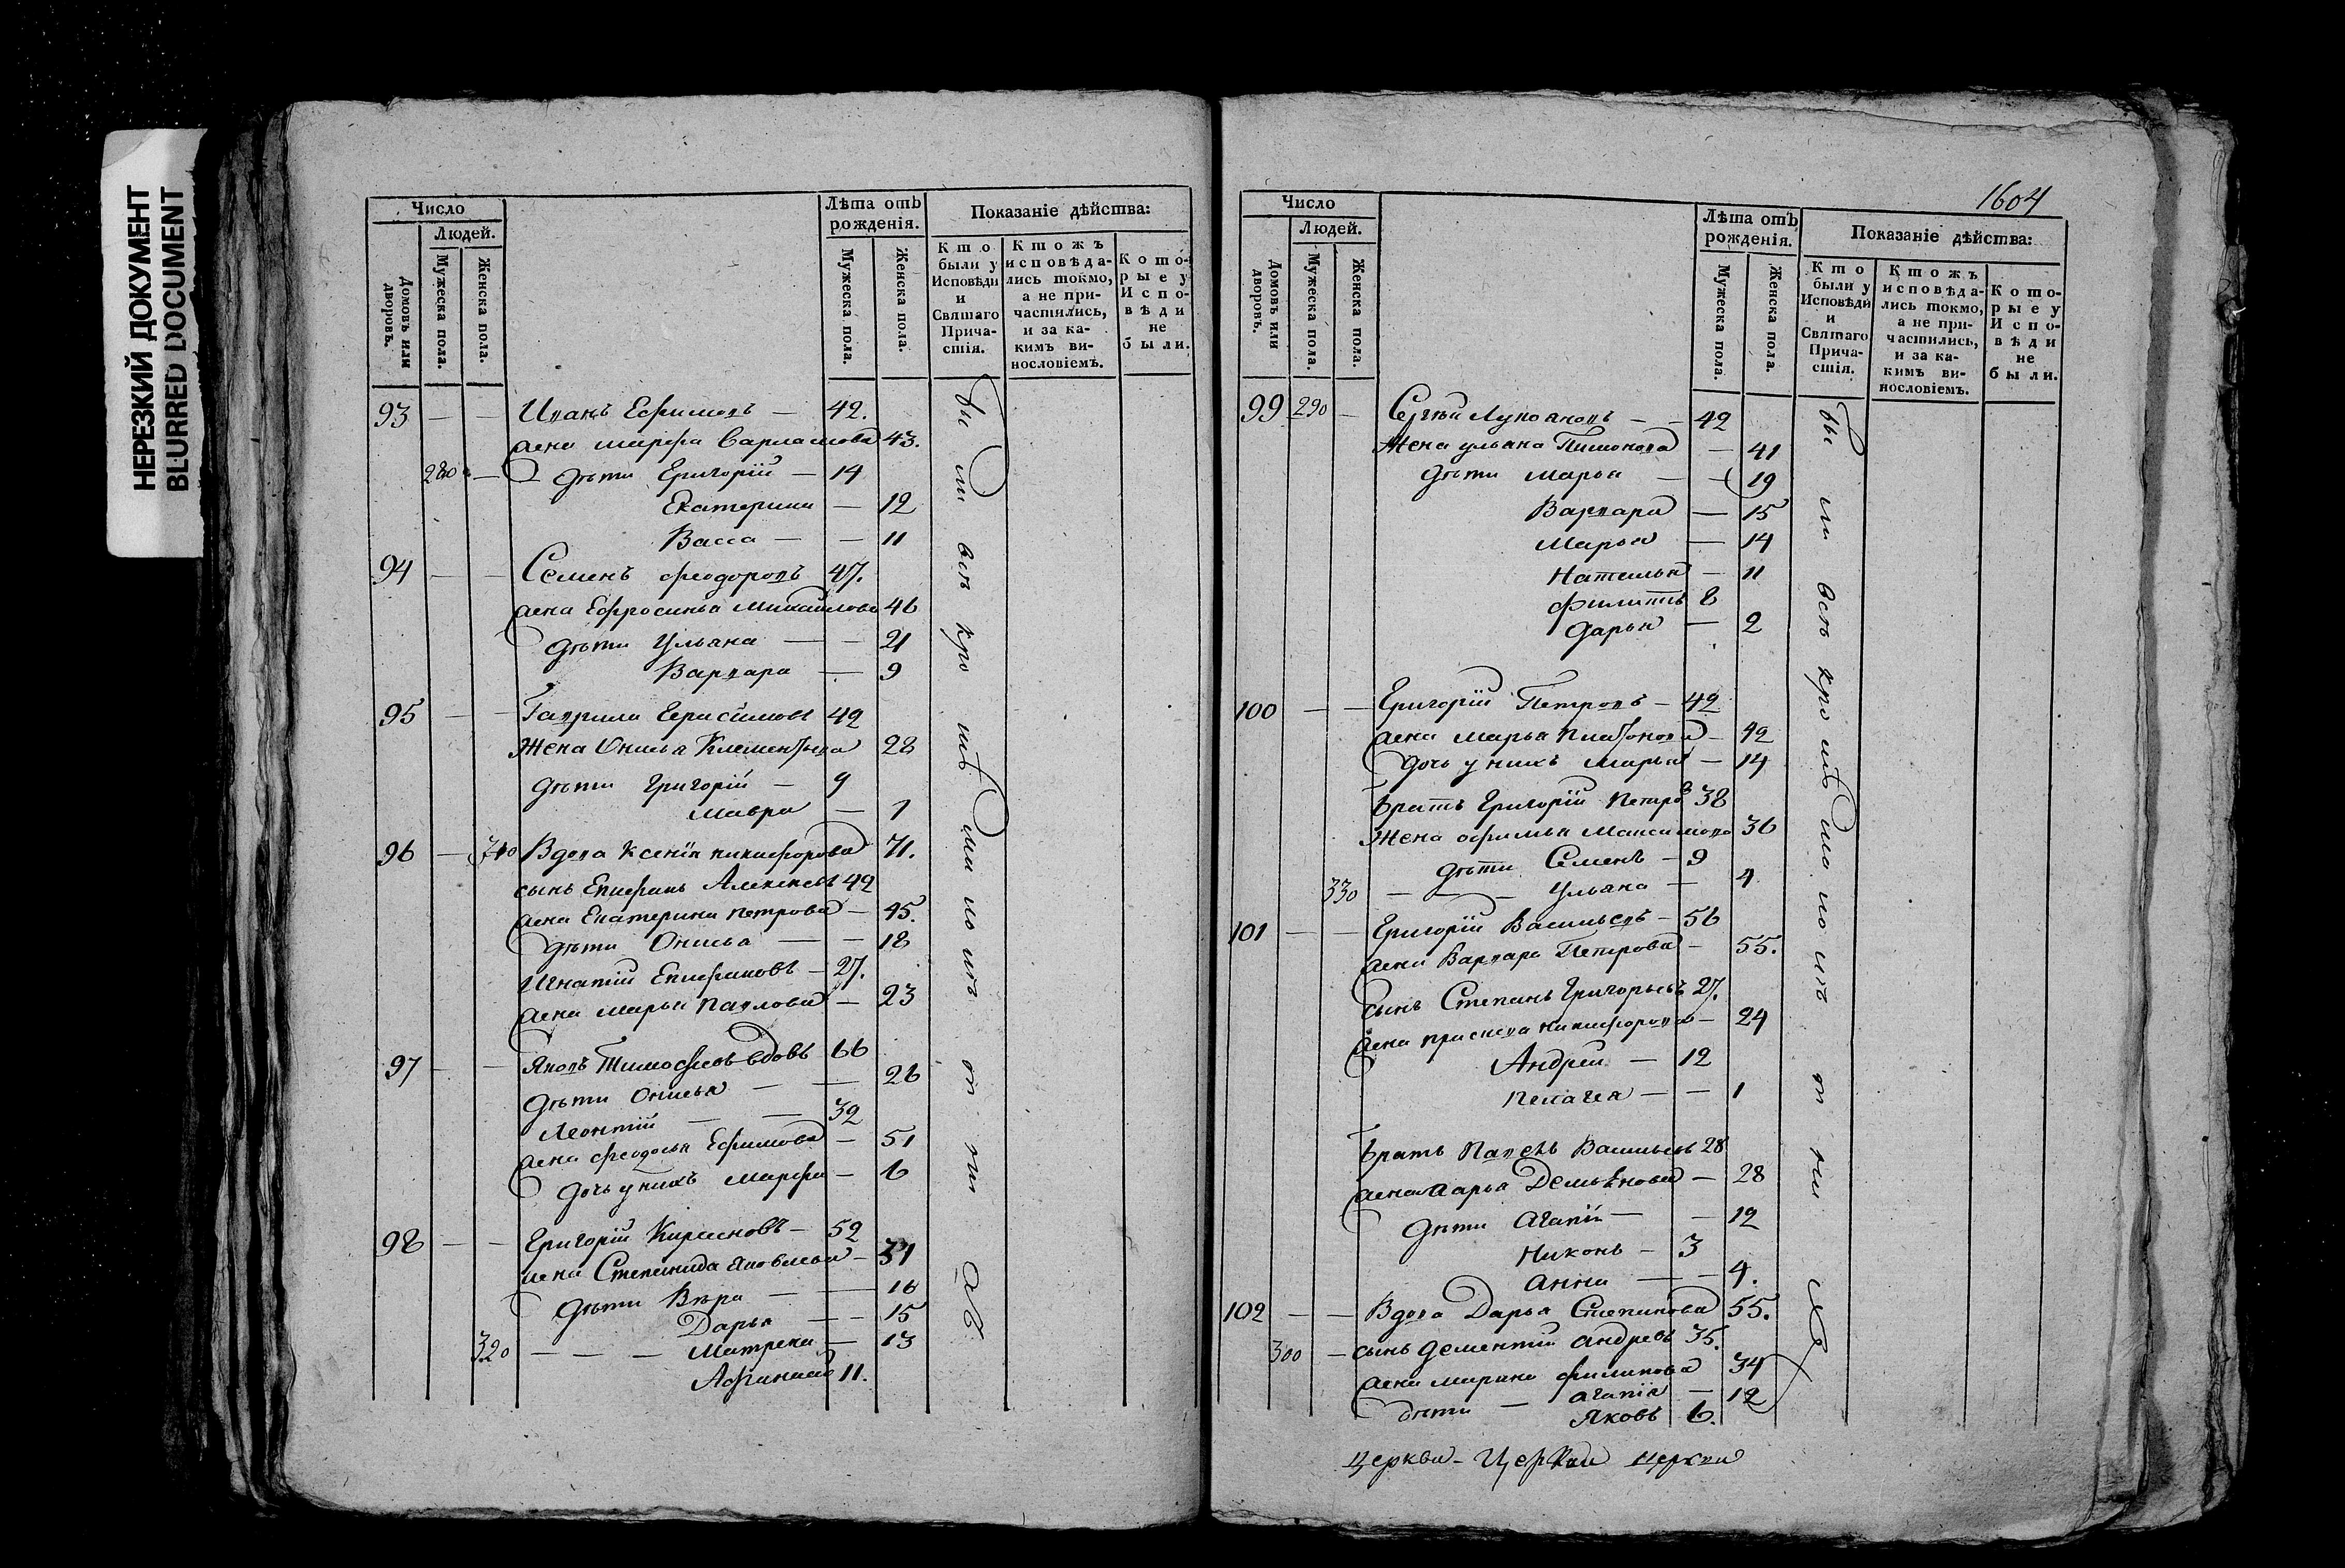 НЕРЕЗКИЙ ДОКУМЕНТ
BLURRED DOCUMENT
Число
Людей.
Домовъ или дворовъ.
Мужеска пола.
Женска пола.
Лѣта отъ рожденія.
Мужеска пола.
Женска пола.
Показаніе дѣйства:
Кто были у Исповѣди и Святаго Причастія.
Ктожъ исповѣдались токмо, а не причастились, и за какимъ винословіемъ.
Которые у Исповѣди не были.
93 — — Иванъ Ефимовъ — 42.
жена Марфа Варламова 43.
280 — дѣти Григорій — 14
Екатерина — 12
Васса — — 11
94 — — Семенъ Феодоровъ 47.
жена Ефросинья Михайлова 46
дѣти Ульяна — — 21
Варвара — 9
95 — — Гаврила Герасимовъ 42
Жена Онисья Клементьева 28
дѣти Григорій — 9
Мавра — 1
96 — 310 Вдова Ксенія Никифорова 71.
сынъ Епифанъ Алексѣевъ 49
жена Екатерина Петрова — 45.
дѣти Онисья — — 18
Игнатій Епифановъ — 27.
жена Марья Павлова — 23
97 — — Яковъ Тимофѣевъ вдовъ 66
дѣти Онисья — — 26
Леонтій — — 32
жена Феодосья Ефимова — 51
дочь у нихъ Марфа — 6
98 — — Григорій — 52
жена Степанида Яковлева — 37
дѣти Вѣра — — 16
Дарья — — 15
320 — — — Матрена — 13
11.
бы ли всѣ кро мѣ ма ло лѣ т ни хъ
1604
Число
Людей.
Домовъ или дворовъ.
Мужеска пола.
Женска пола.
Лѣта отъ рожденія.
Мужеска пола.
Женска пола.
Показаніе дѣйства:
Кто были у Исповѣди и Святаго Причастія.
Ктожъ исповѣдались токмо, а не причастились, и за какимъ винословіемъ.
Которые у Исповѣди не были.
99 290 — Сергѣй Лукояновъ — — 42
Жена Ульяна Пимонова — 41
дѣти Марья — — 19
Варвара — 15
Марья — 14
Наталья — 11
Филиппъ 8
Дарья — 2
100 — — Григорій Петровъ — 42
жена Марья Платонова — 42
дочь у нихъ Марья — 14
братъ Григорій Петровъ 38
Жена Офимья Максимова 36
дѣти Семенъ — 9
330 — — — Ульяна — 4
101 — — Григорій Васильевъ — 56
жена Варвара Петрова — 55.
сынъ Степанъ Григорьевъ 27.
жена Никифорова — 24
Андрей — 12
Пелагея — — 1
братъ Павелъ Васильевъ 28
жена Дарья Демьянова — 28
дѣти Агапія — — 12
Никонъ — 3
Анна — — 4.
102 — — Вдова Дарья Степанова 55.
300 — сынъ Дементій Андреевъ 35.
жена Марина Филипова 34
дѣти — Агапія — 12
Яковъ 6.
бы ли всѣ кро мѣ ма ло лѣ т ни хъ
Церкви — Церкви Церкви